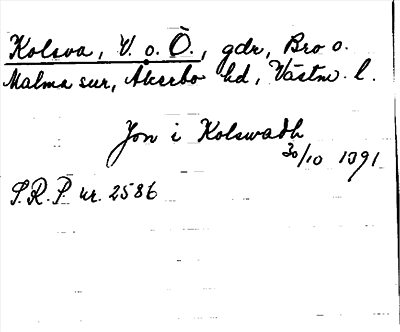 Kolsva, V. o. Ö., gdr, Bro o.
Malma snr, Åkerbo hd, Västm. l.
Jon i Kolswadh
30/10 1391
S.R.P. nr. 2586